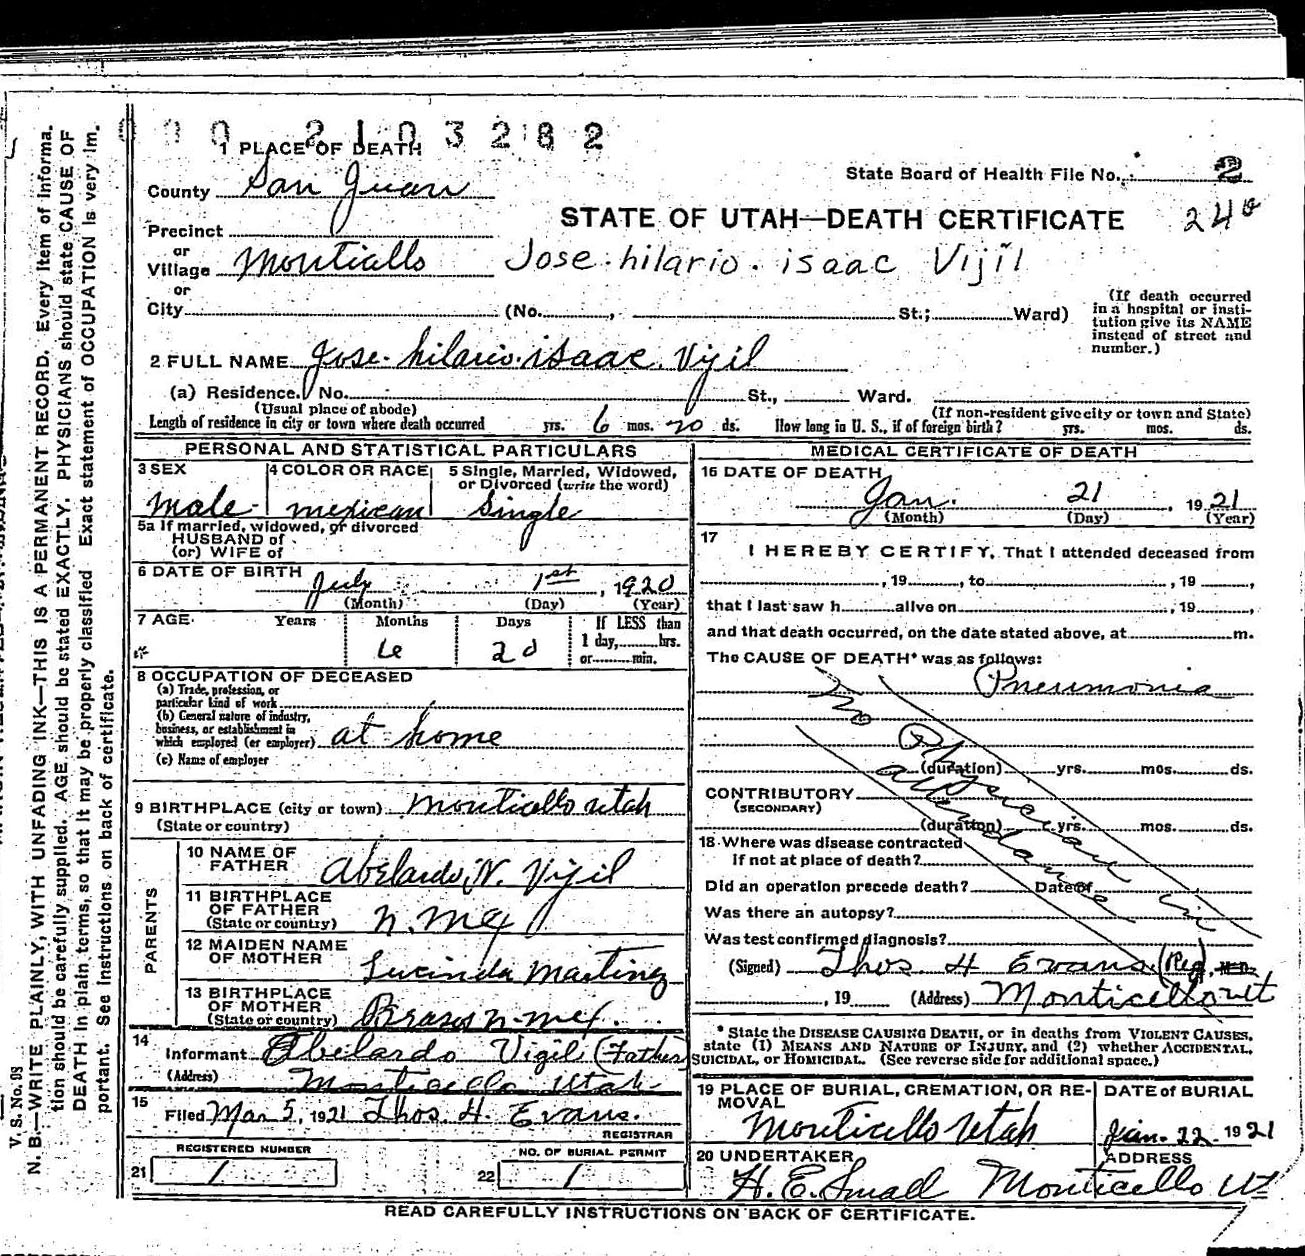 000 2103282
1 PLACE OF DEATH
County San Juan
State Board of Health File No. 2
Precinct
STATE OF UTAH—DEATH CERTIFICATE 24
or
Village Monticello Jose hilario isaac Vijil
or
City (No. , St.; Ward)
(If death occurred
in a hospital or insti-
tution give its NAME
instead of street and
number.)
2 FULL NAME Jose hilario isaac Vijil
(a) Residence. No. St., Ward.
(Usual place of abode) (If non-resident give city or town and State)
Length of residence in city or town where death occurred yrs. 6 mos. 20 ds. How long in U. S., if of foreign birth? yrs. mos. ds.
PERSONAL AND STATISTICAL PARTICULARS
3 SEX 4 COLOR OR RACE 5 Single, Married, Widowed,
or Divorced (write the word)
male mexican Single
5a If married, widowed, or divorced
HUSBAND of
(or) WIFE of
6 DATE OF BIRTH July 1st, 1920
(Month) (Day) (Year)
7 AGE Years Months Days If LESS than
1 day, hrs.
or min.
6 20
8 OCCUPATION OF DECEASED
(a) Trade, profession, or
particular kind of work
(b) General nature of industry,
business, or establishment in
which employed (or employer) at home
(c) Name of employer
9 BIRTHPLACE (city or town) Monticello Utah
(State or country)
PARENTS
10 NAME OF
FATHER Abelardo N. Vijil
11 BIRTHPLACE
OF FATHER
(State or country) N. Mex
12 MAIDEN NAME
OF MOTHER Lucinda Martinez
13 BIRTHPLACE
OF MOTHER
(State or country) N. Mex.
14
Informant Abelardo Vigil (Father)
(Address) Monticello Utah
15
Filed Mar 5, 1921 Thos. H Evans.
REGISTRAR
REGISTERED NUMBER NO. OF BURIAL PERMIT
21 1 22 1
MEDICAL CERTIFICATE OF DEATH
16 DATE OF DEATH
Jan. 21, 1921
(Month) (Day) (Year)
17
I HEREBY CERTIFY, That I attended deceased from
, 19 , to , 19 ,
that I last saw h alive on , 19 ,
and that death occurred, on the date stated above, at m.
The CAUSE OF DEATH* was as follows:
Pneumonia
No Physician in
attendance
(duration) yrs. mos. ds.
CONTRIBUTORY
(SECONDARY)
(duration) yrs. mos. ds.
18 Where was disease contracted
If not at place of death?
Did an operation precede death? Date of
Was there an autopsy?
Was test confirmed diagnosis?
(Signed) Thos. H Evans (Reg), M.D.
, 19 (Address) Monticello Ut
* State the DISEASE CAUSING DEATH, or in deaths from VIOLENT CAUSES,
state (1) MEANS AND NATURE OF INJURY, and (2) whether ACCIDENTAL,
SUICIDAL, or HOMICIDAL. (See reverse side for additional space.)
19 PLACE OF BURIAL, CREMATION, OR RE-
MOVAL
DATE of BURIAL
Monticello Utah Jan. 22 1921
20 UNDERTAKER ADDRESS
H. E. Small Monticello Ut
READ CAREFULLY INSTRUCTIONS ON BACK OF CERTIFICATE.
V. S. No. 98
N. B.—WRITE PLAINLY, WITH UNFADING INK—THIS IS A PERMANENT RECORD. Every item of informa-
tion should be carefully supplied. AGE should be stated EXACTLY. PHYSICIANS should state CAUSE OF
DEATH in plain terms, so that it may be properly classified. Exact statement of OCCUPATION is very im-
portant. See instructions on back of certificate.